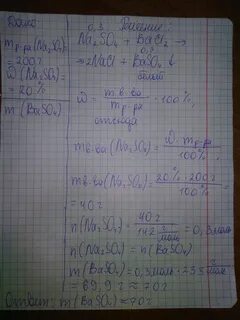 Дано
m р-ра (Na₂SO₄) = 200 г
ω (Na₂SO₄) = 20 %
m (BaSO₄)
Решение:
0,3
Na₂SO₄ + BaCl₂ →
0,3
→ 2NaCl + BaSO₄ ↓
белый
ω = m в-ва / m р-ра · 100%,
отсюда
m в-ва (Na₂SO₄) = ω · m р-ра / 100%,
m в-ва (Na₂SO₄) = 20% · 200г / 100% =
= 40 г
n(Na₂SO₄) = 40 г / 142 г/моль = 0,3 моль
n(Na₂SO₄) = n(BaSO₄)
m(BaSO₄) = 0,3 моль · 233 г/моль
= 69,9 г ≈ 70 г
Ответ: m(BaSO₄) ≈ 70 г